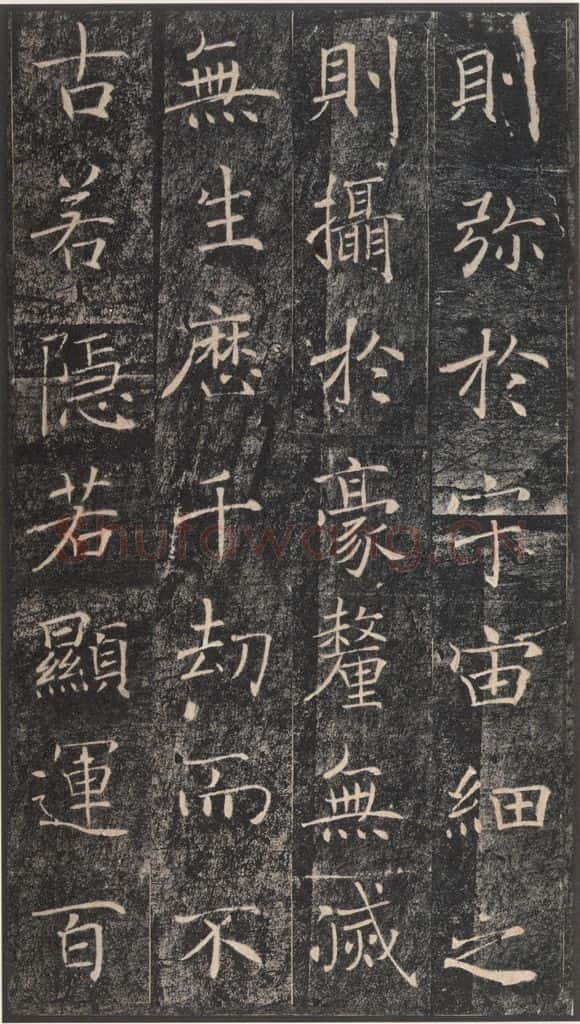 則弥於宇宙細之
則攝於豪釐無滅
無生歷千劫而不
古若隱若顯運百
Shufawang.CN